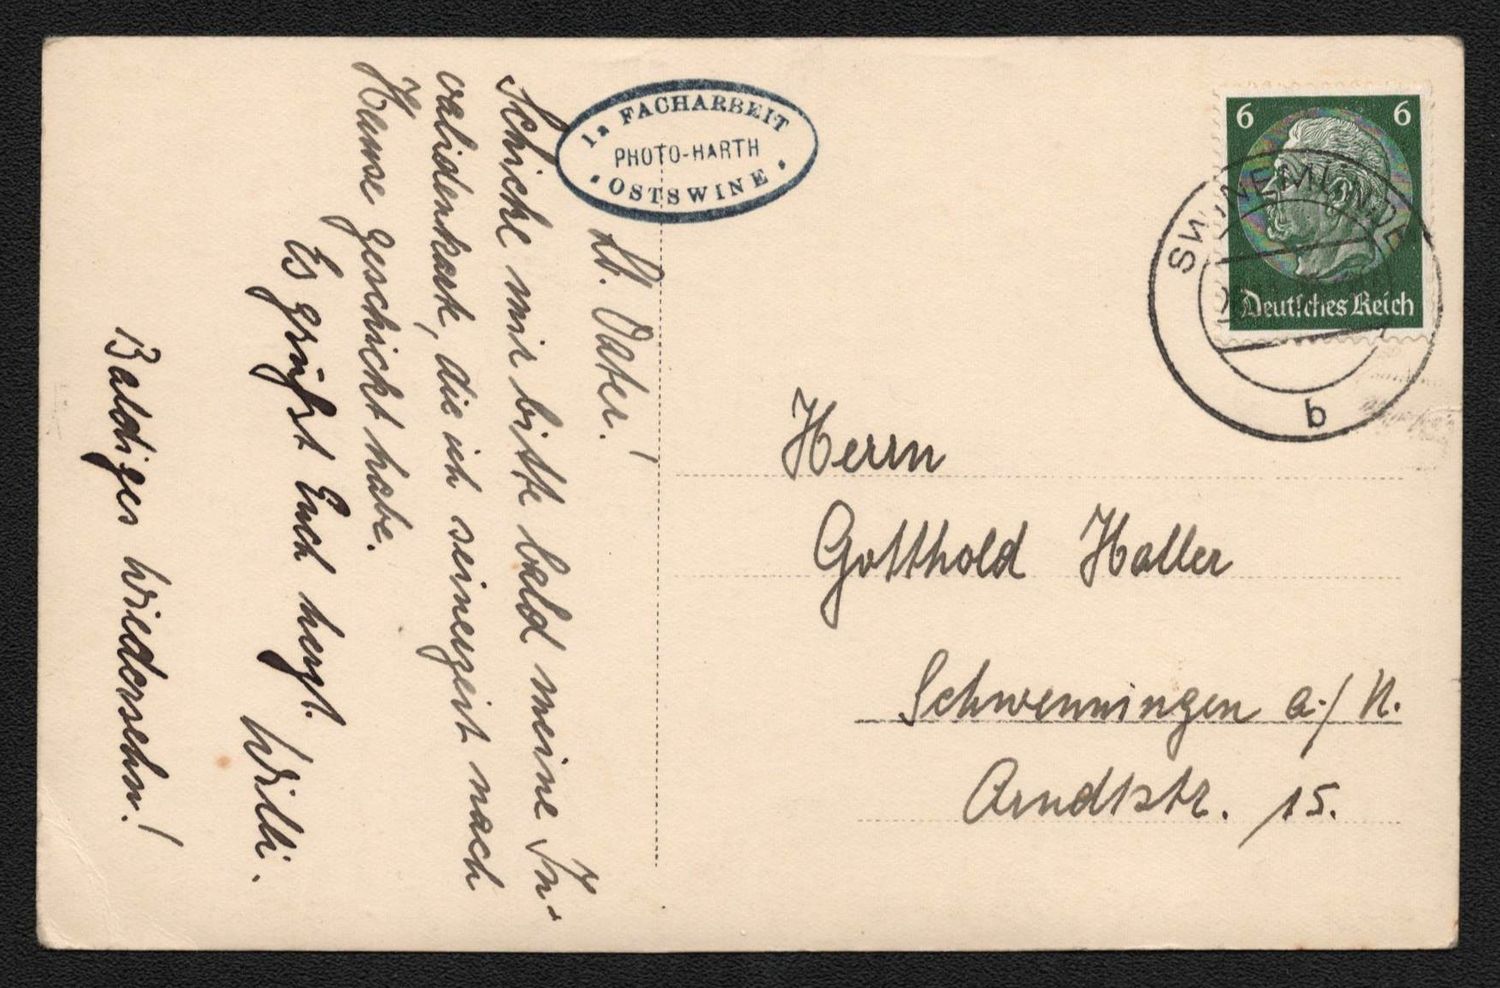 1a FACHARBEIT
PHOTO-HARTH
OSTSWINE
Lb. Vater!
Schicke mir bitte bald meine In-
validenkarte, die ich seinerzeit nach
Hause geschickt habe.
Es grüßt Euch herzl.
Willi.
Baldiges Wiedersehn!
6 6
Deutsches Reich
SWINEMÜNDE
b
Herrn
Gotthold Haller
Schwenningen a./N.
Arndtstr. 15.